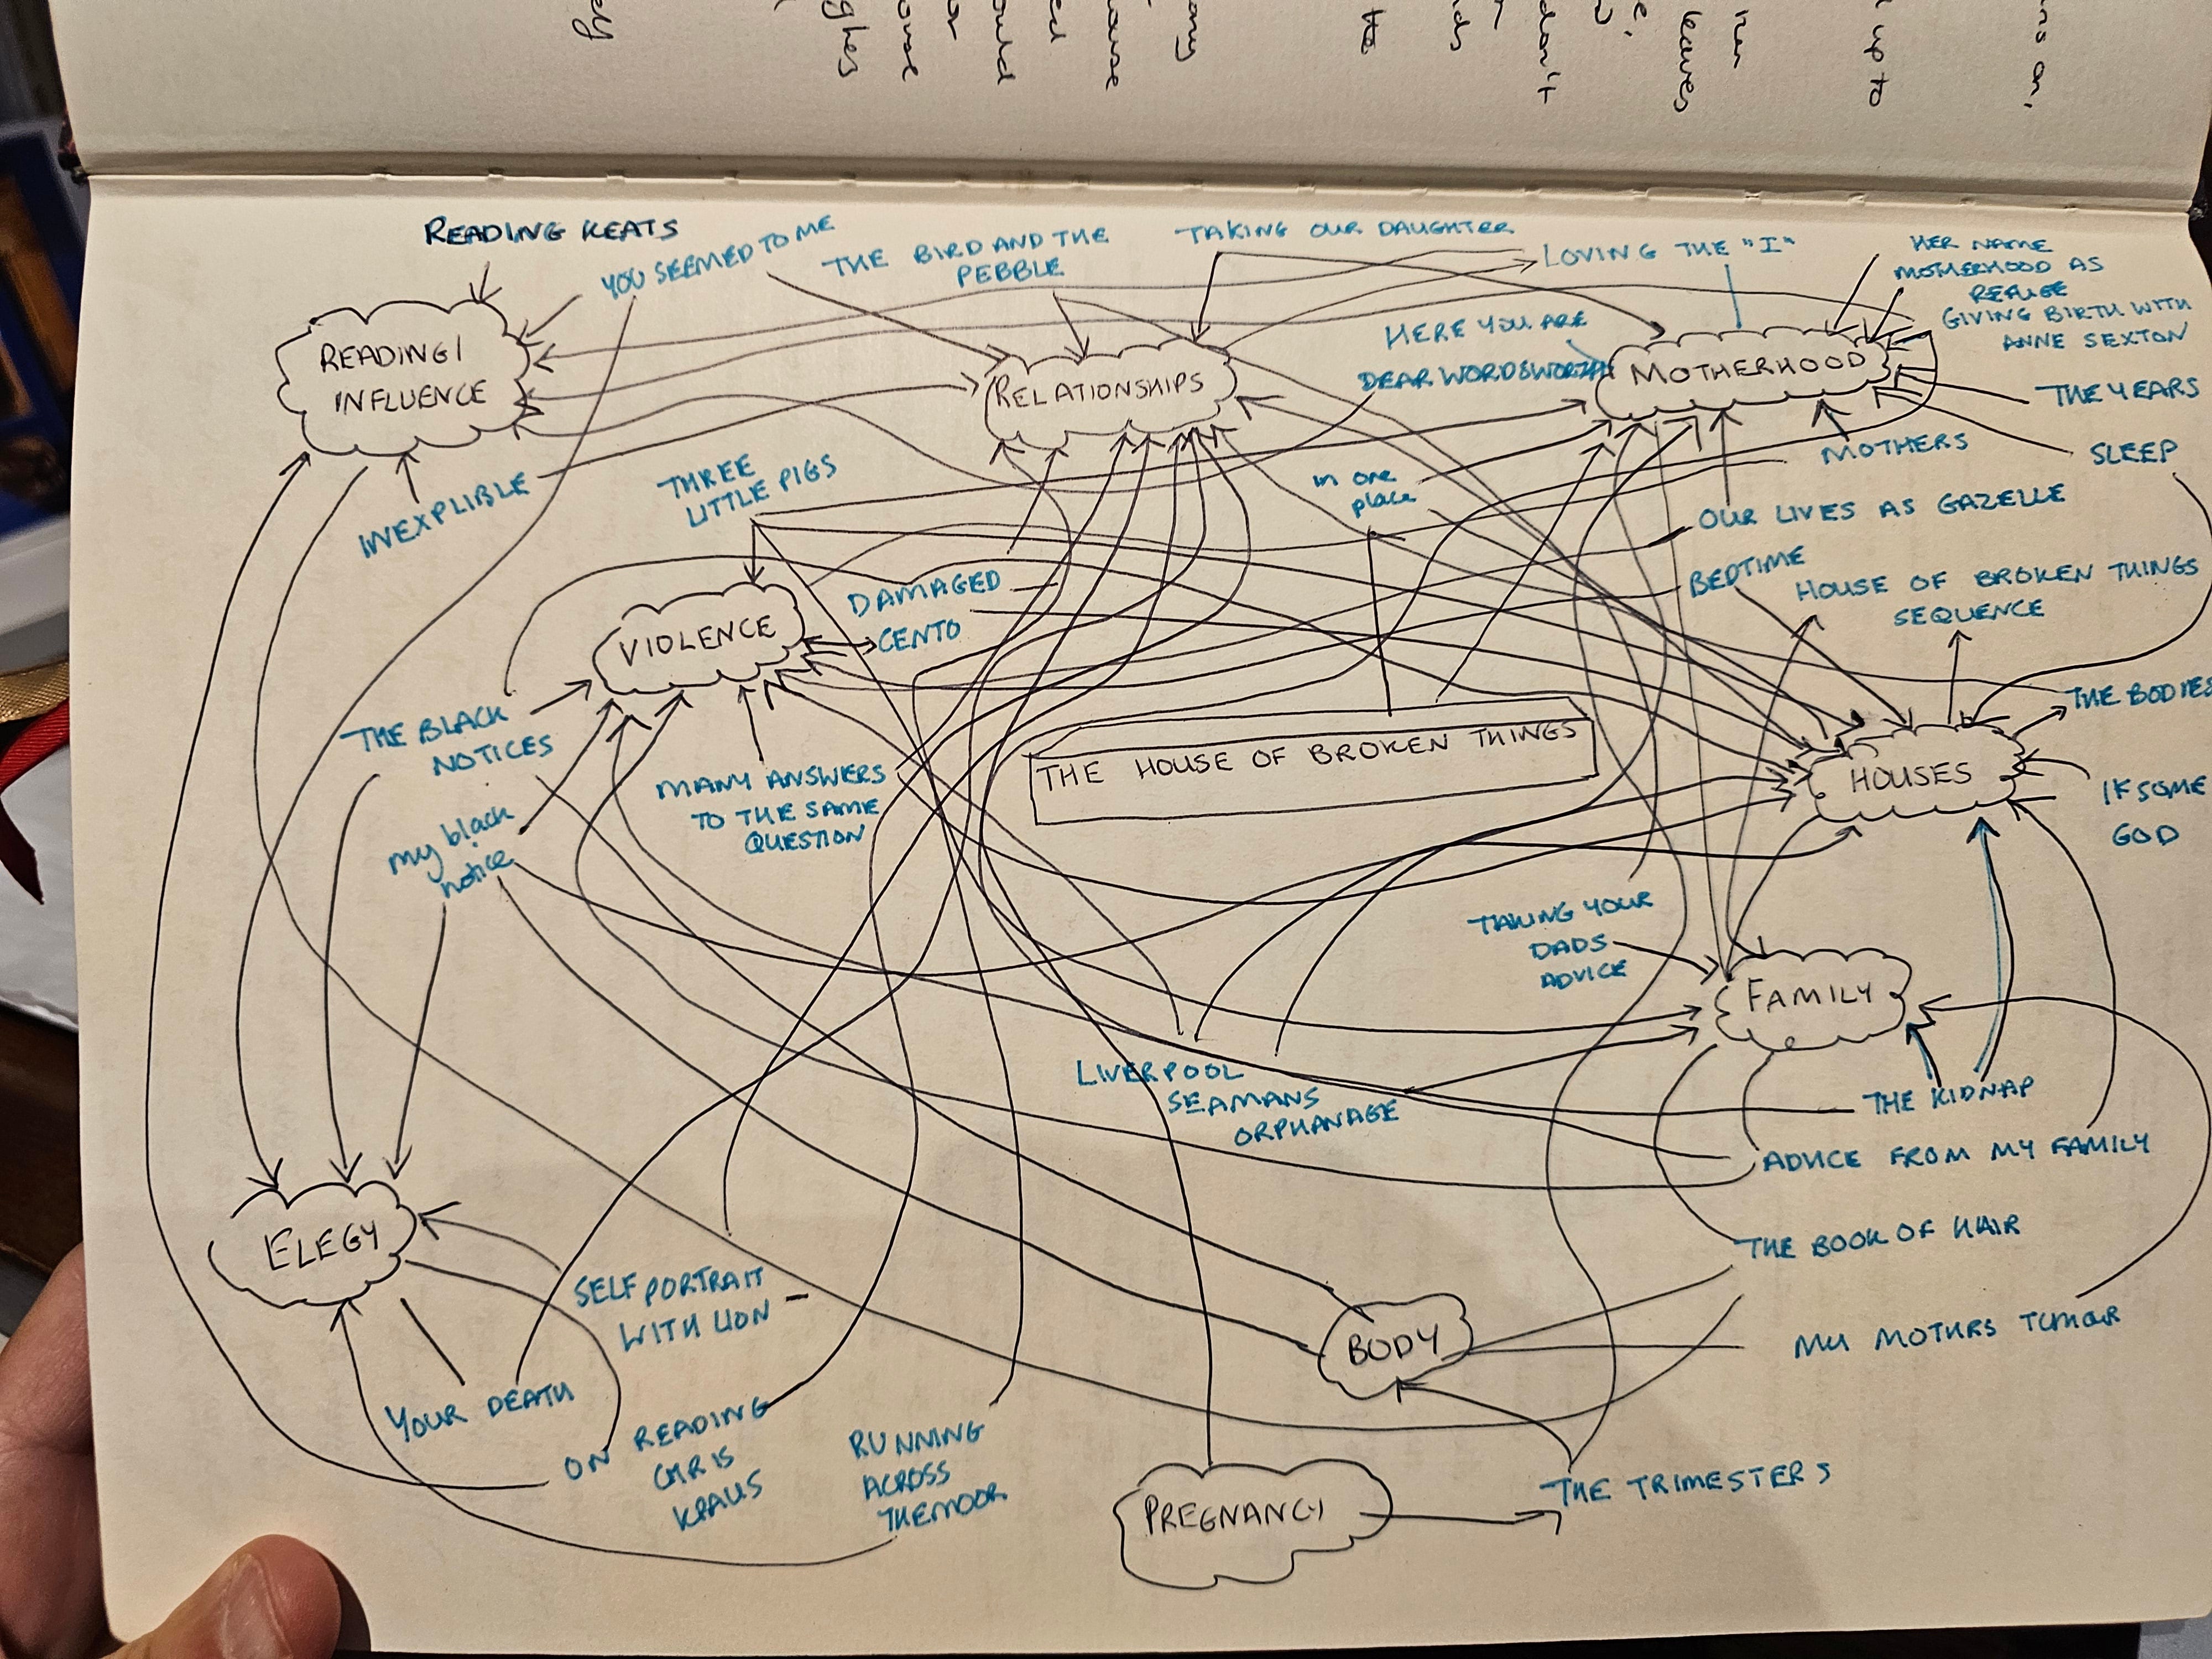 READING KEATS
YOU SEEMED TO ME
THE BIRD AND THE
PEBBLE
TAKING OUR DAUGHTER
LOVING THE "I"
HER NAME
MOTHERHOOD AS
REFUGE
GIVING BIRTH WITH
ANNE SEXTON
READING/
INFLUENCE
RELATIONSHIPS
HERE YOU ARE
DEAR WORDSWORTH
MOTHERHOOD
THE YEARS
MOTHERS
SLEEP
INEXPLIBLE
THREE
LITTLE PIGS
in one
place
OUR LIVES AS GAZELLE
BEDTIME
HOUSE OF BROKEN THINGS
SEQUENCE
VIOLENCE
DAMAGED
CENTO
THE BLACK
NOTICES
my black
notice
MANY ANSWERS
TO THE SAME
QUESTION
THE HOUSE OF BROKEN THINGS
THE BODIES
HOUSES
IF SOME
GOD
TAKING YOUR
DADS
ADVICE
FAMILY
LIVERPOOL
SEAMANS
ORPHANAGE
THE KIDNAP
ADVICE FROM MY FAMILY
THE BOOK OF HAIR
MY MOTHRS TUMOUR
ELEGY
SELF PORTRAIT
WITH LION
YOUR DEATH
ON READING
CHRIS
KRAUS
RUNNING
ACROSS
THE MOOR
BODY
PREGNANCY
THE TRIMESTERS
ghes
ouse
ould
or
house
to
don't
leaves
up to
on,